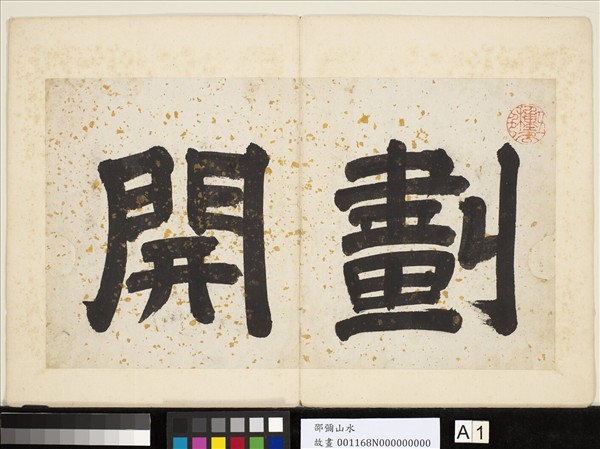 劃開
邵彌山水
故畫 001168N000000000
A 1